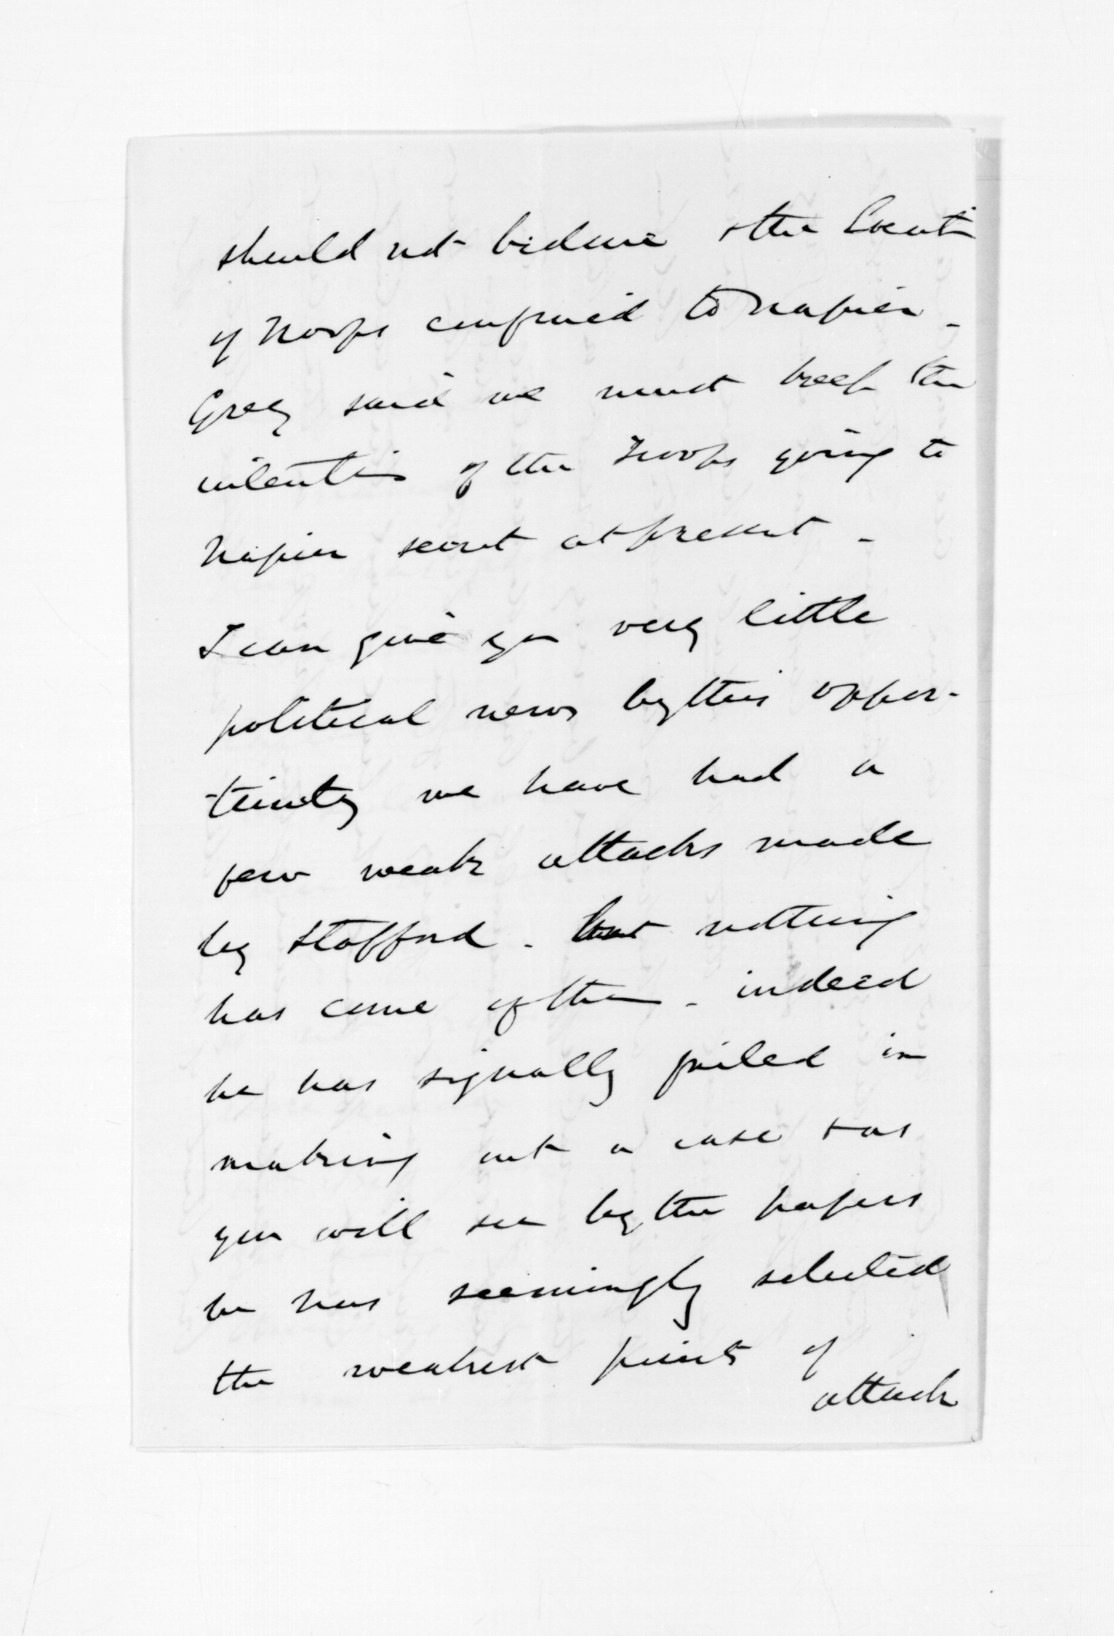 should not be done & the Locatn
of Troops confined to Napier -
Grey said we must keep the
intention of the Troops going to
Napier secret at present -
I can give you very little
political news by this oppor-
tunity we have had a
few weak attacks made
by Stafford - but nothing
has come of them - indeed
he has signally failed in
making out a case & as
you will see by the papers
he has seemingly selected
the weakest points of
attack